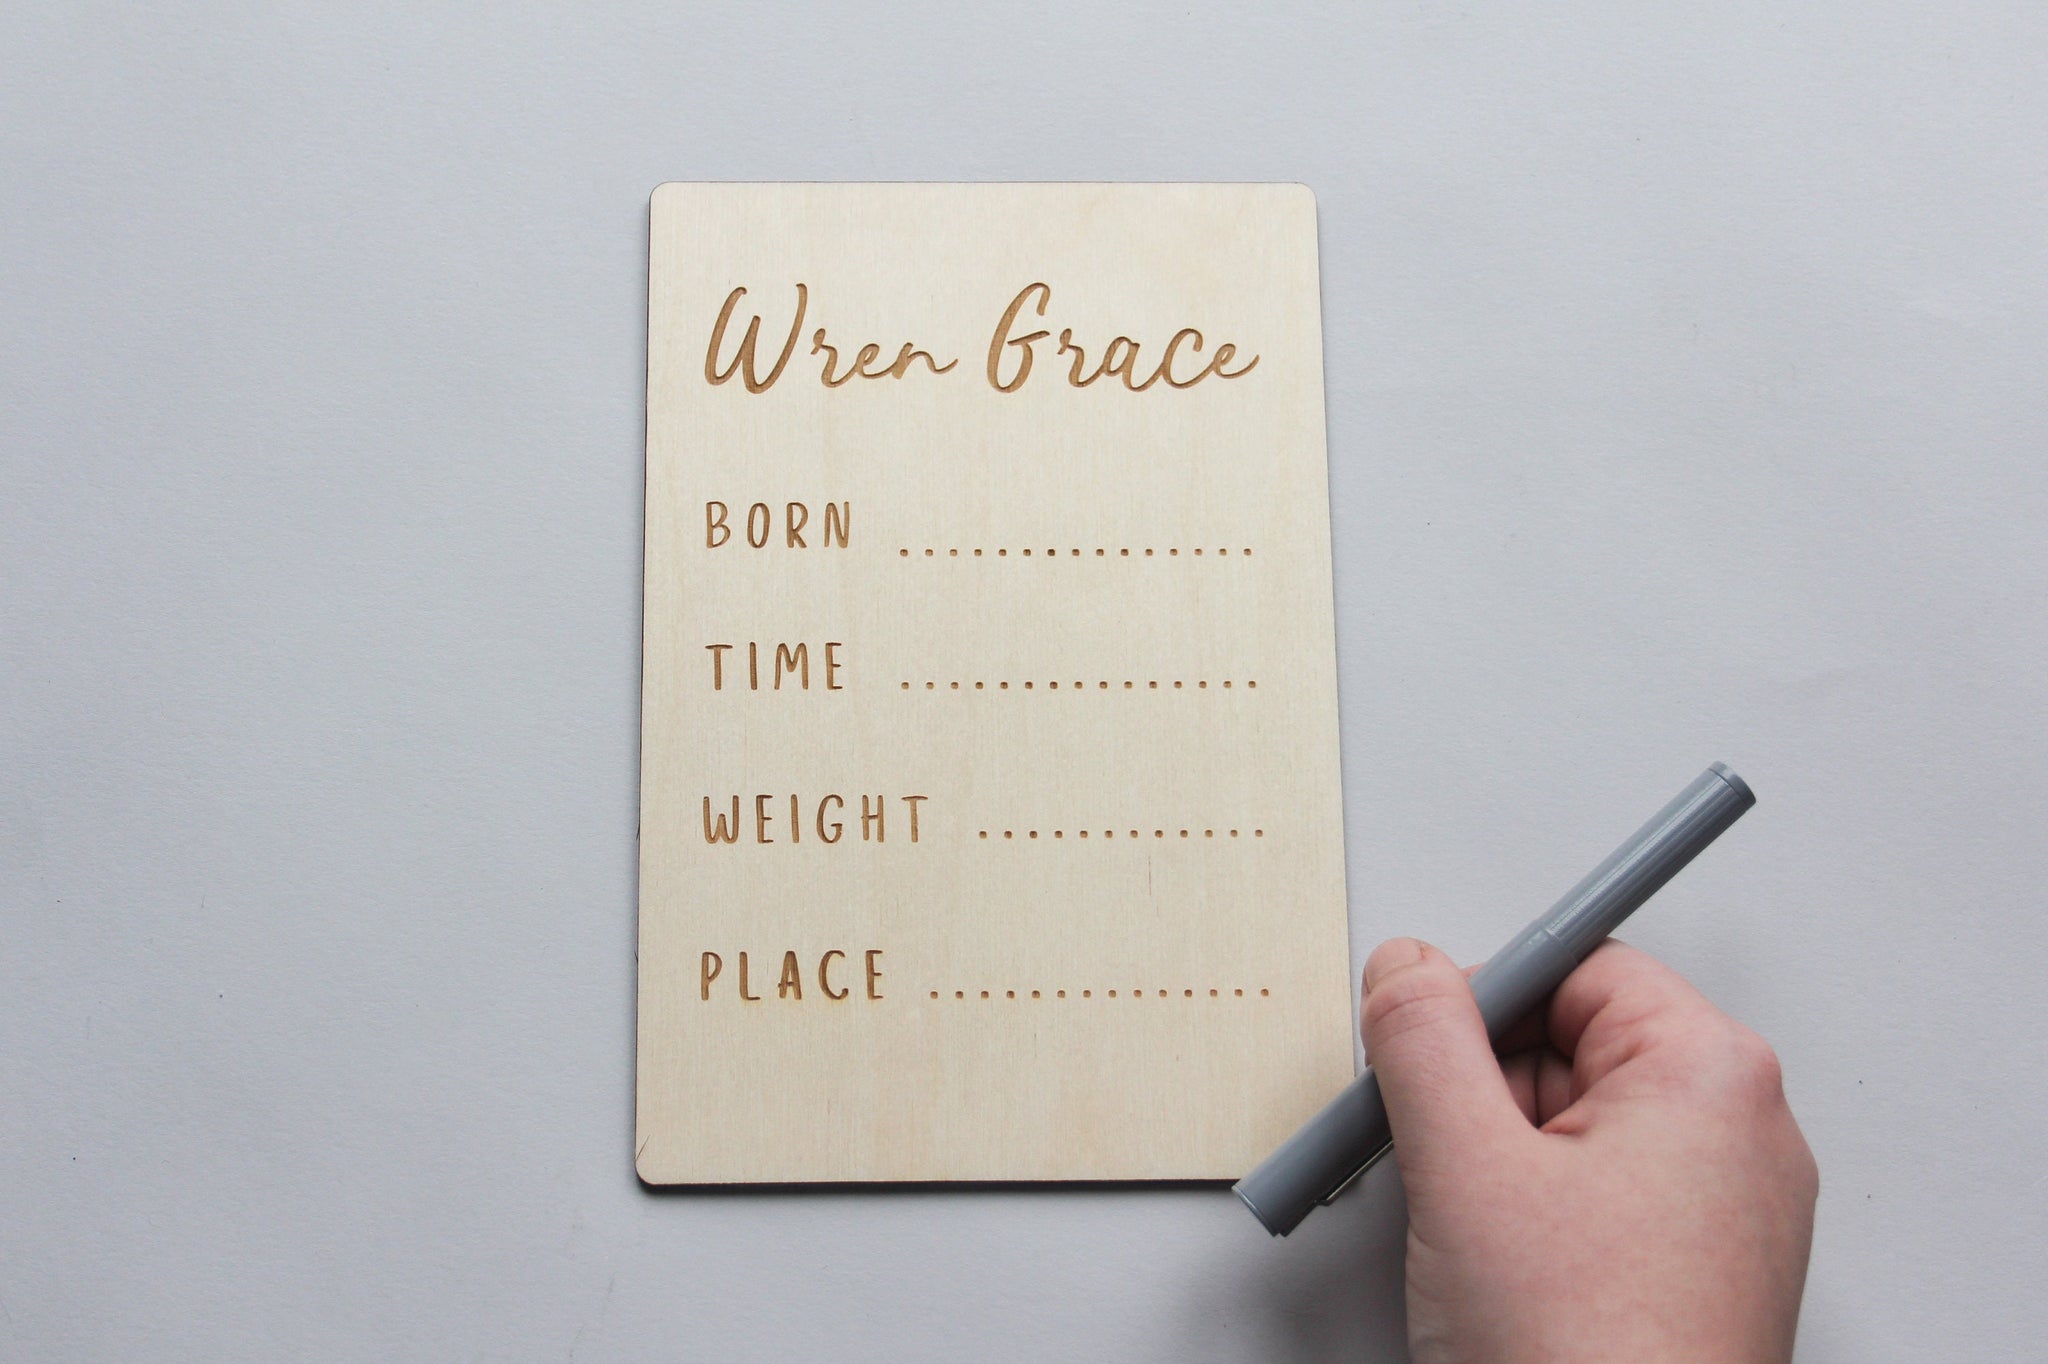 Wren Grace
BORN ...............
TIME ...............
WEIGHT ............
PLACE ..............